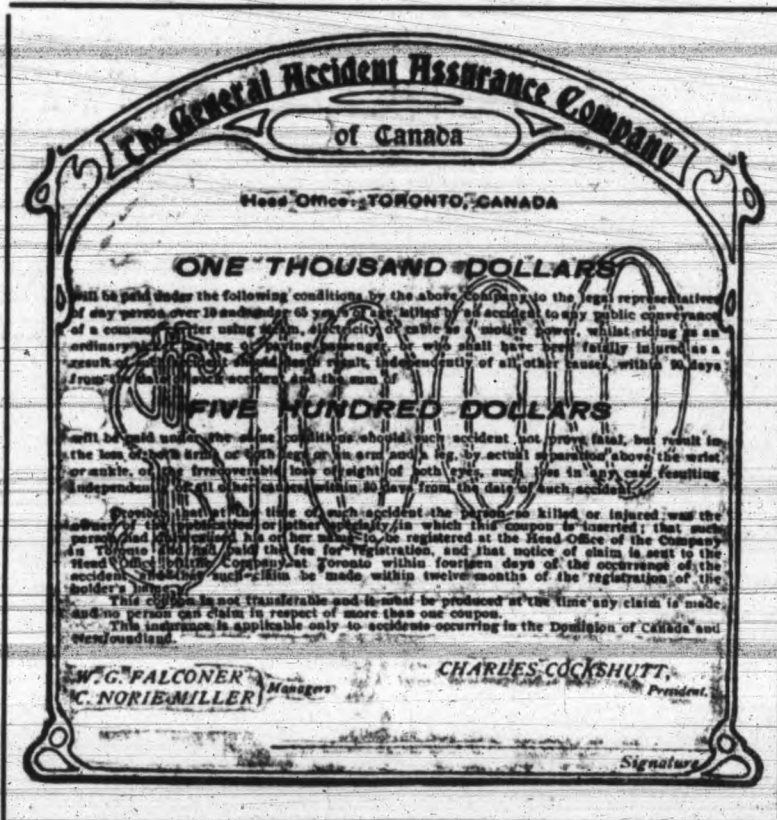 The General Accident Assurance Company
of Canada
Head Office: TORONTO, CANADA
ONE THOUSAND DOLLARS
will be paid under the following conditions by the above Company to the legal representatives
of any person over 10 and under 65 years of age, killed by an accident to any public conveyance
of a common using steam, electricity or cable as a motive power, whilst riding as an
ordinary passenger, who shall have been fatally injured as a
result should death result, independently of all other causes, within 90 days
from the date of such accident and the sum of
FIVE HUNDRED DOLLARS
will be paid under the same conditions should such accident not prove fatal, but result in
the loss of both arms or both legs or an arm and a leg, by actual separation above the wrist
or ankle, or the irrecoverable loss of sight of both eyes, such loss in any case resulting
independently of all other causes within 80 days from the date of such accident.
Provided that at the time of such accident the person so killed or injured was the
owner of the publication or other specialty in which this coupon is inserted; that such
person had his or her name to be registered at the Head Office of the Company
in Toronto and had paid the fee for registration, and that notice of claim is sent to the
Head Office of the Company at Toronto within fourteen days of the occurrence of the
accident and that such claim be made within twelve months of the registration of the
holder's name.
This coupon is not transferable and it must be produced at the time any claim is made
and no person can claim in respect of more than one coupon.
This insurance is applicable only to accidents occurring in the Dominion of Canada and
Newfoundland.
W. G. FALCONER
C. NORIE-MILLER
Managers
CHARLES COCKSHUTT,
President.
Signature